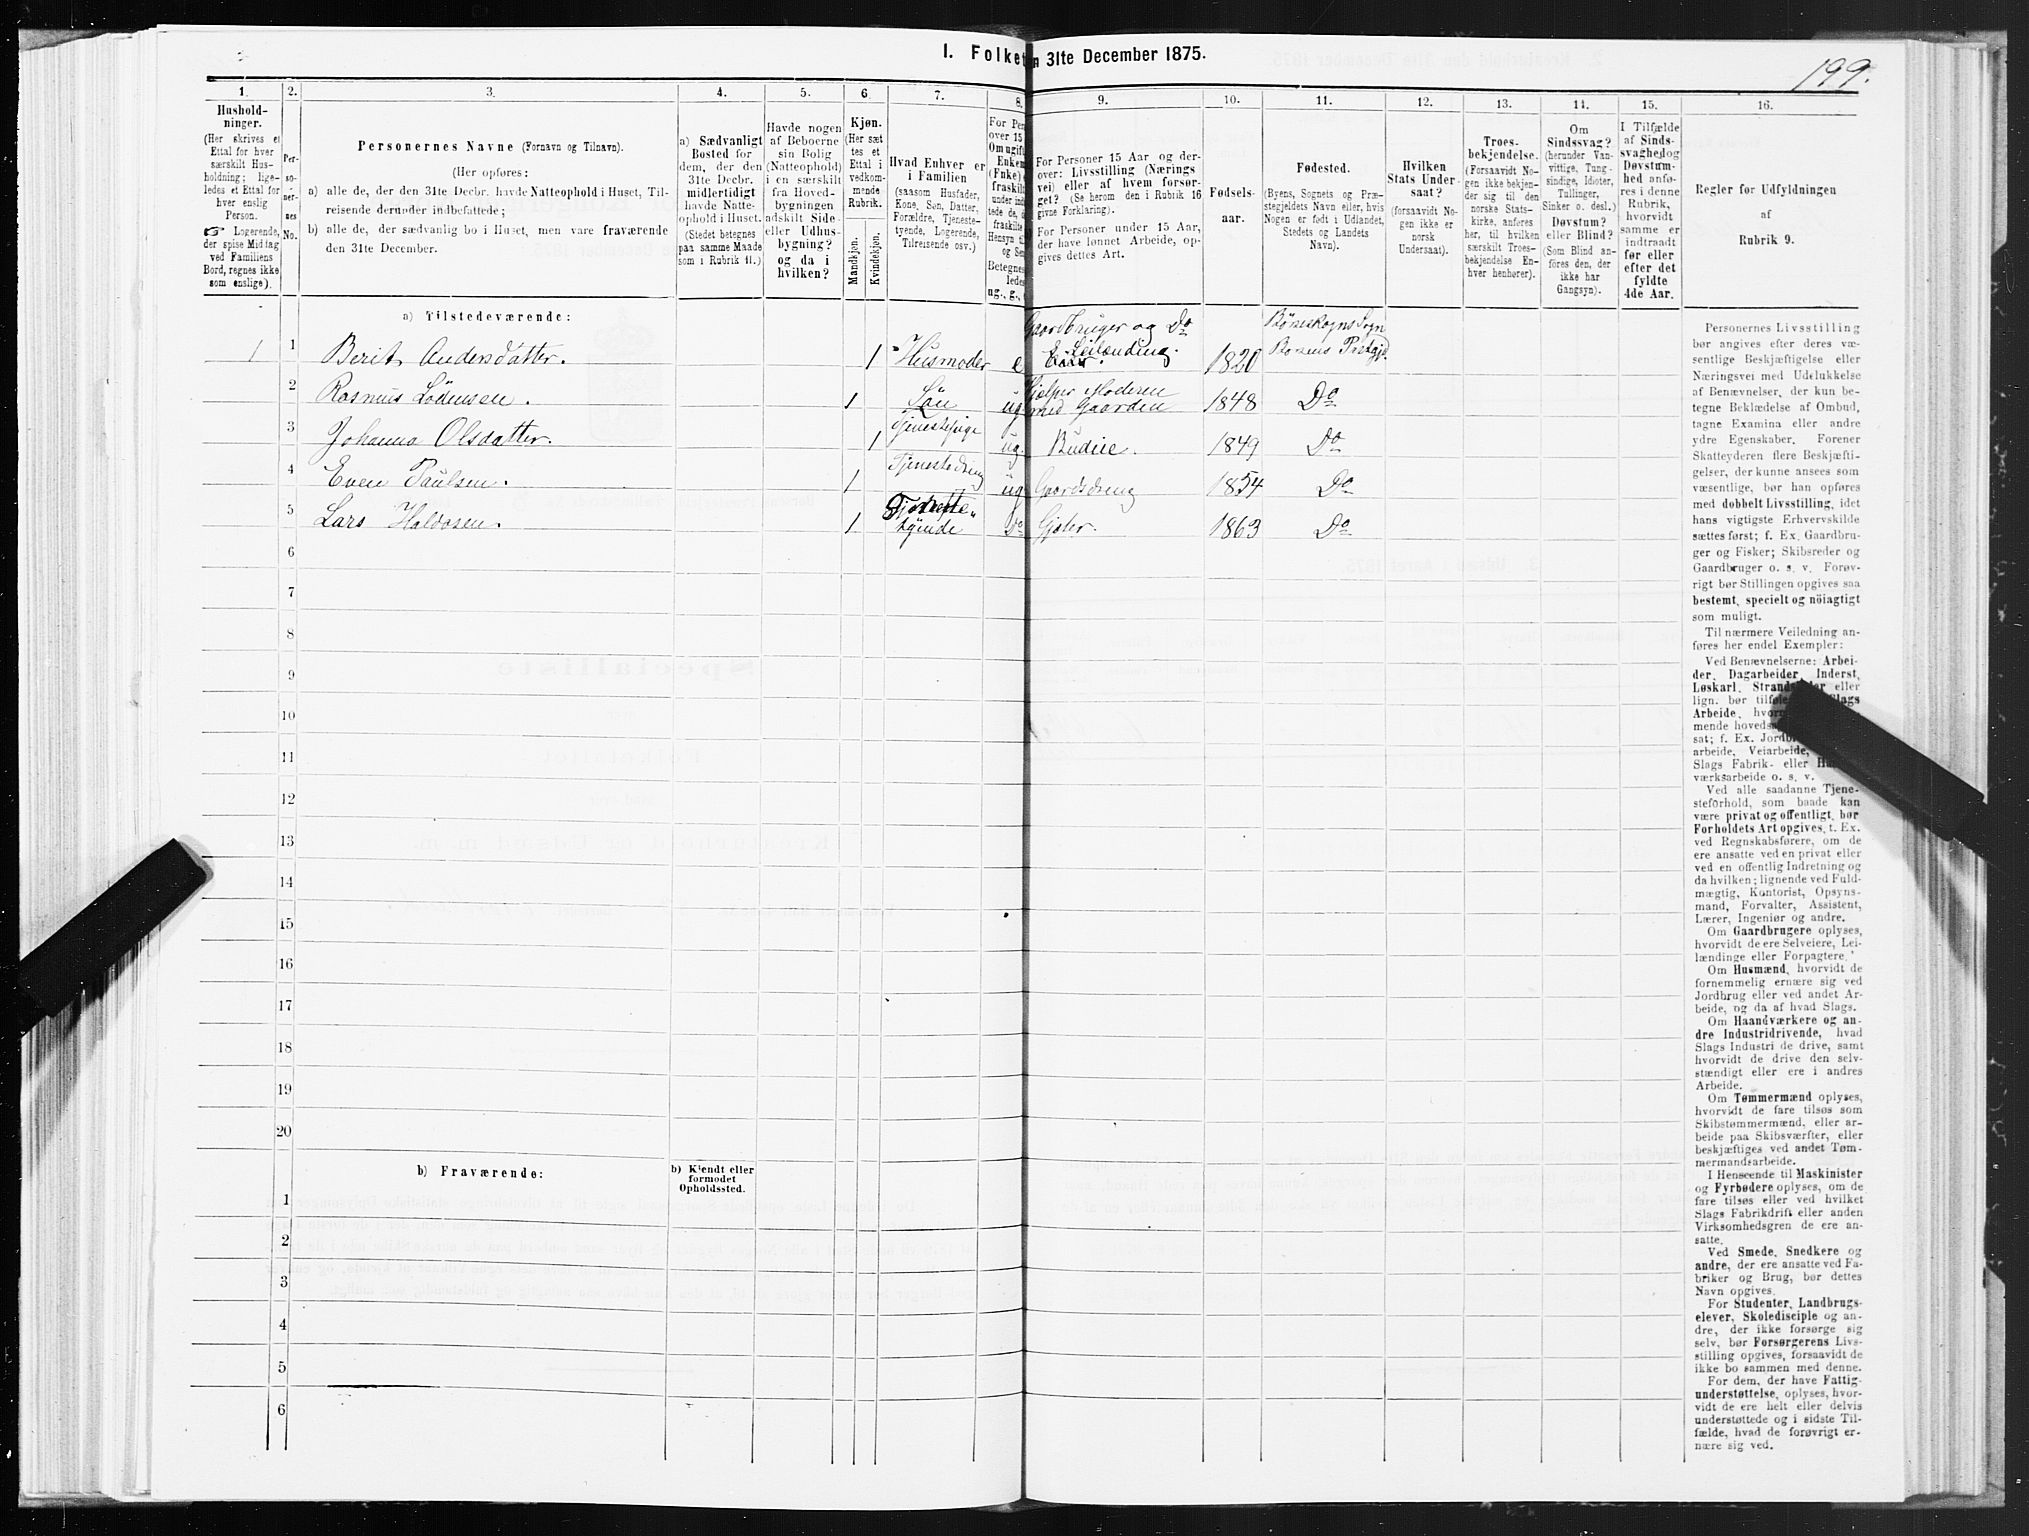 I. Folket
n 31te December 1875.
199.
1. 2. 3. 4. 5. 6. 7. 8. 9. 10. 11. 12. 13. 14. 15. 16.
Hushold-
ninger.
(Her skrives et
Ettal for hver
særskilt Hus-
holdning; lige-
ledes et Ettal for
hver enslig
Person.
☞ Logerende,
der spise Middag
ved Familiens
Bord, regnes ikke
som enslige).
Per-
so-
ner-
nes
No.
Personernes Navne (Fornavn og Tilnavn).
(Her opføres:
a) alle de, der den 31te Decbr. havde Natteophold i Huset, Til-
reisende derunder indbefattede;
b) alle de, der sædvanlig bo i Huset, men vare fraværende
den 31te December.
a) Sædvanligt
Bosted for
dem, der den
31te Decbr.
midlertidigt
havde Natte-
ophold i Huset.
(Stedet betegnes
paa samme Maade
som i Rubrik 11.)
Havde nogen
af Beboerne
sin Bolig
(Natteophold)
i en særskilt
fra Hoved-
bygningen
adskilt Side-
eller Udhus-
bygning?
og da i
hvilken?
Kjøn.
(Her sæt
tes et
Ettal i
vedkom-
mende
Rubrik.
Mandkjøn.
Kvindekjøn.
Hvad Enhver er
i Familien
(saasom Husfader,
Kone, Søn, Datter,
Forældre, Tjeneste-
tyende, Logerende,
Tilreisende osv.)
For Per
over 15
Om ugift
Enkem
(Enke)
fraskil
under ind
tede de,
fraskilte
Hensyn til
og Se
Betegnes
ledes
ug., g.,
For Personer 15 Aar og der-
over: Livsstilling (Nærings
vei) eller af hvem forsør-
get? (Se herom den i Rubrik 16
givne Forklaring).
For Personer under 15 Aar,
der have lønnet Arbeide, op-
gives dettes Art.
Fødsels-
aar.
Fødested.
(Byens, Sognets og Præ-
stegjeldets Navn eller, hvis
Nogen er født i Udlandet,
Stedets og Landets
Navn).
Hvilken
Stats Under-
saat?
(forsaavidt No-
gen ikke er
norsk
Undersaat).
Troes-
bekjendelse.
(Forsaavidt No-
gen ikke bekjen-
der sig til den
norske Stats-
kirke, anføres
her, til hvilken
særskilt Troes-
bekjendelse En-
hver henhører).
Om
Sindssvag?
(herunder Van-
vittige, Tung-
sindige, Idioter,
Tullinger,
Sinker o. desl.)
Døvstum?
eller Blind?
(Som Blind an-
føres den, der
ikke har
Gangsyn).
I Tilfælde
af Sinds-
svaghed og
Døvstum-
hed anfø-
res i denne
Rubrik,
hvorvidt
samme er
indtraadt
før eller
efter det
fyldte
4de Aar.
Regler før Udfyldningen
af
Rubrik 9.
a) Tilstedeværende:
1 1 Berit Andersdatter. 1 Husmoder e Gaardbruger og Do Leilænding. 1820 Bönskogns Sogn
2 Rasmus Lödensen. 1 Sön ug Hjælper Moderen med Gaarden 1848 Do
3 Johanna Olsdatter. 1 Tjenestepige ug. Budeie. 1849 Do
4 Even Paulsen. 1 Tjenestedreng ug Gaardsdreng 1854 Do
5 Lars Haldosen. 1 Tjeneste- tyende Do Gjeter. 1863 Do
6
7
8
9
10
11
12
13
14
15
16
17
18
19
20
b) Fraværende:
b) Kjendt eller
formodet
Opholdssted.
1
2
3
4
5
6
Personernes Livsstilling
bør angives efter deres væ-
sentlige Beskjæftigelse eller
Næringsvei med Udelukkelse
af Benævnelser, der kun be-
tegne Beklædelse af Ombud,
tagne Examina eller andre
ydre Egenskaber. Forener
Skatteyderen flere Beskjæfti-
gelser, der kunne ansees som
væsentlige, bør han opføres
med dobbelt Livsstilling, idet
hans vigtigste Erhvervskilde
sættes først; f. Ex. Gaardbru-
ger og Fisker; Skibsreder og
Gaardbruger o. s. v. Forøv-
rigt bør Stillingen opgives saa
bestemt, specielt og nöiagtigt
som muligt.
Til nærmere Veiledning an-
føres her endel Exempler:
Ved Benævnelserne: Arbei-
der, Dagarbeider, Inderst,
Løskarl, eller
lign. bør Slags
Arbeide,
mende
sat; f. Ex.
arbeide, Veiarbeide,
Slags Fabrik- eller
værksarbeide o. s. v.
Ved alle saadanne Tjene-
steforhold, som baade kan
være privat og offentligt, bør
Forholdets Art opgives, t. Ex.
ved Regnskabsførere, om de
ere ansatte ved en privat eller
ved en offentlig Indretning og
da hvilken; lignende ved Fuld-
mægtig, Kontorist, Opsyns-
mand, Forvalter, Assistent,
Lærer, Ingeniør og andre.
Om Gaardbrugere oplyses,
hvorvidt de ere Selveiere, Lei-
lændinge eller Forpagtere.
Om Husmænd, hvorvidt de
fornemmelig ernære sig ved
Jordbrug eller ved andet Ar-
beide, og da af hvad Slags.
Om Haandværkere og an-
dre Industridrivende, hvad
Slags Industri de drive, samt
hvorvidt de drive den selv-
stændigt eller ere i andres
Arbeide.
Om Tømmermænd oplyses,
hvorvidt de fare tilsøs som
Skibstømmermænd, eller ar-
beide paa Skibsværfter, eller
beskjæftiges ved andet Tøm-
mermandsarbeide.
I Henseende til Maskinister
og Fyrbødere oplyses, om de
fare tilsøs eller ved hvilket
Slags Fabrikdrift eller anden
Virksomhedsgren de ere an-
satte.
Ved Smede, Snedkere og
andre, der ere ansatte ved Fa-
briker og Brug, bør dettes
Navn opgives.
For Studenter, Landbrugs-
elever, Skoledisciple og an-
dre, der ikke forsørge sig
selv, bør Forsørgerens Livs-
stilling opgives, forsaavidt de
ikke bo sammen med denne.
For dem, der have Fattig-
understøttelse, oplyses, hvor-
vidt de ere helt eller delvis
understøttede og i sidste Til-
fælde, hvad de forøvrigt er-
nære sig ved.